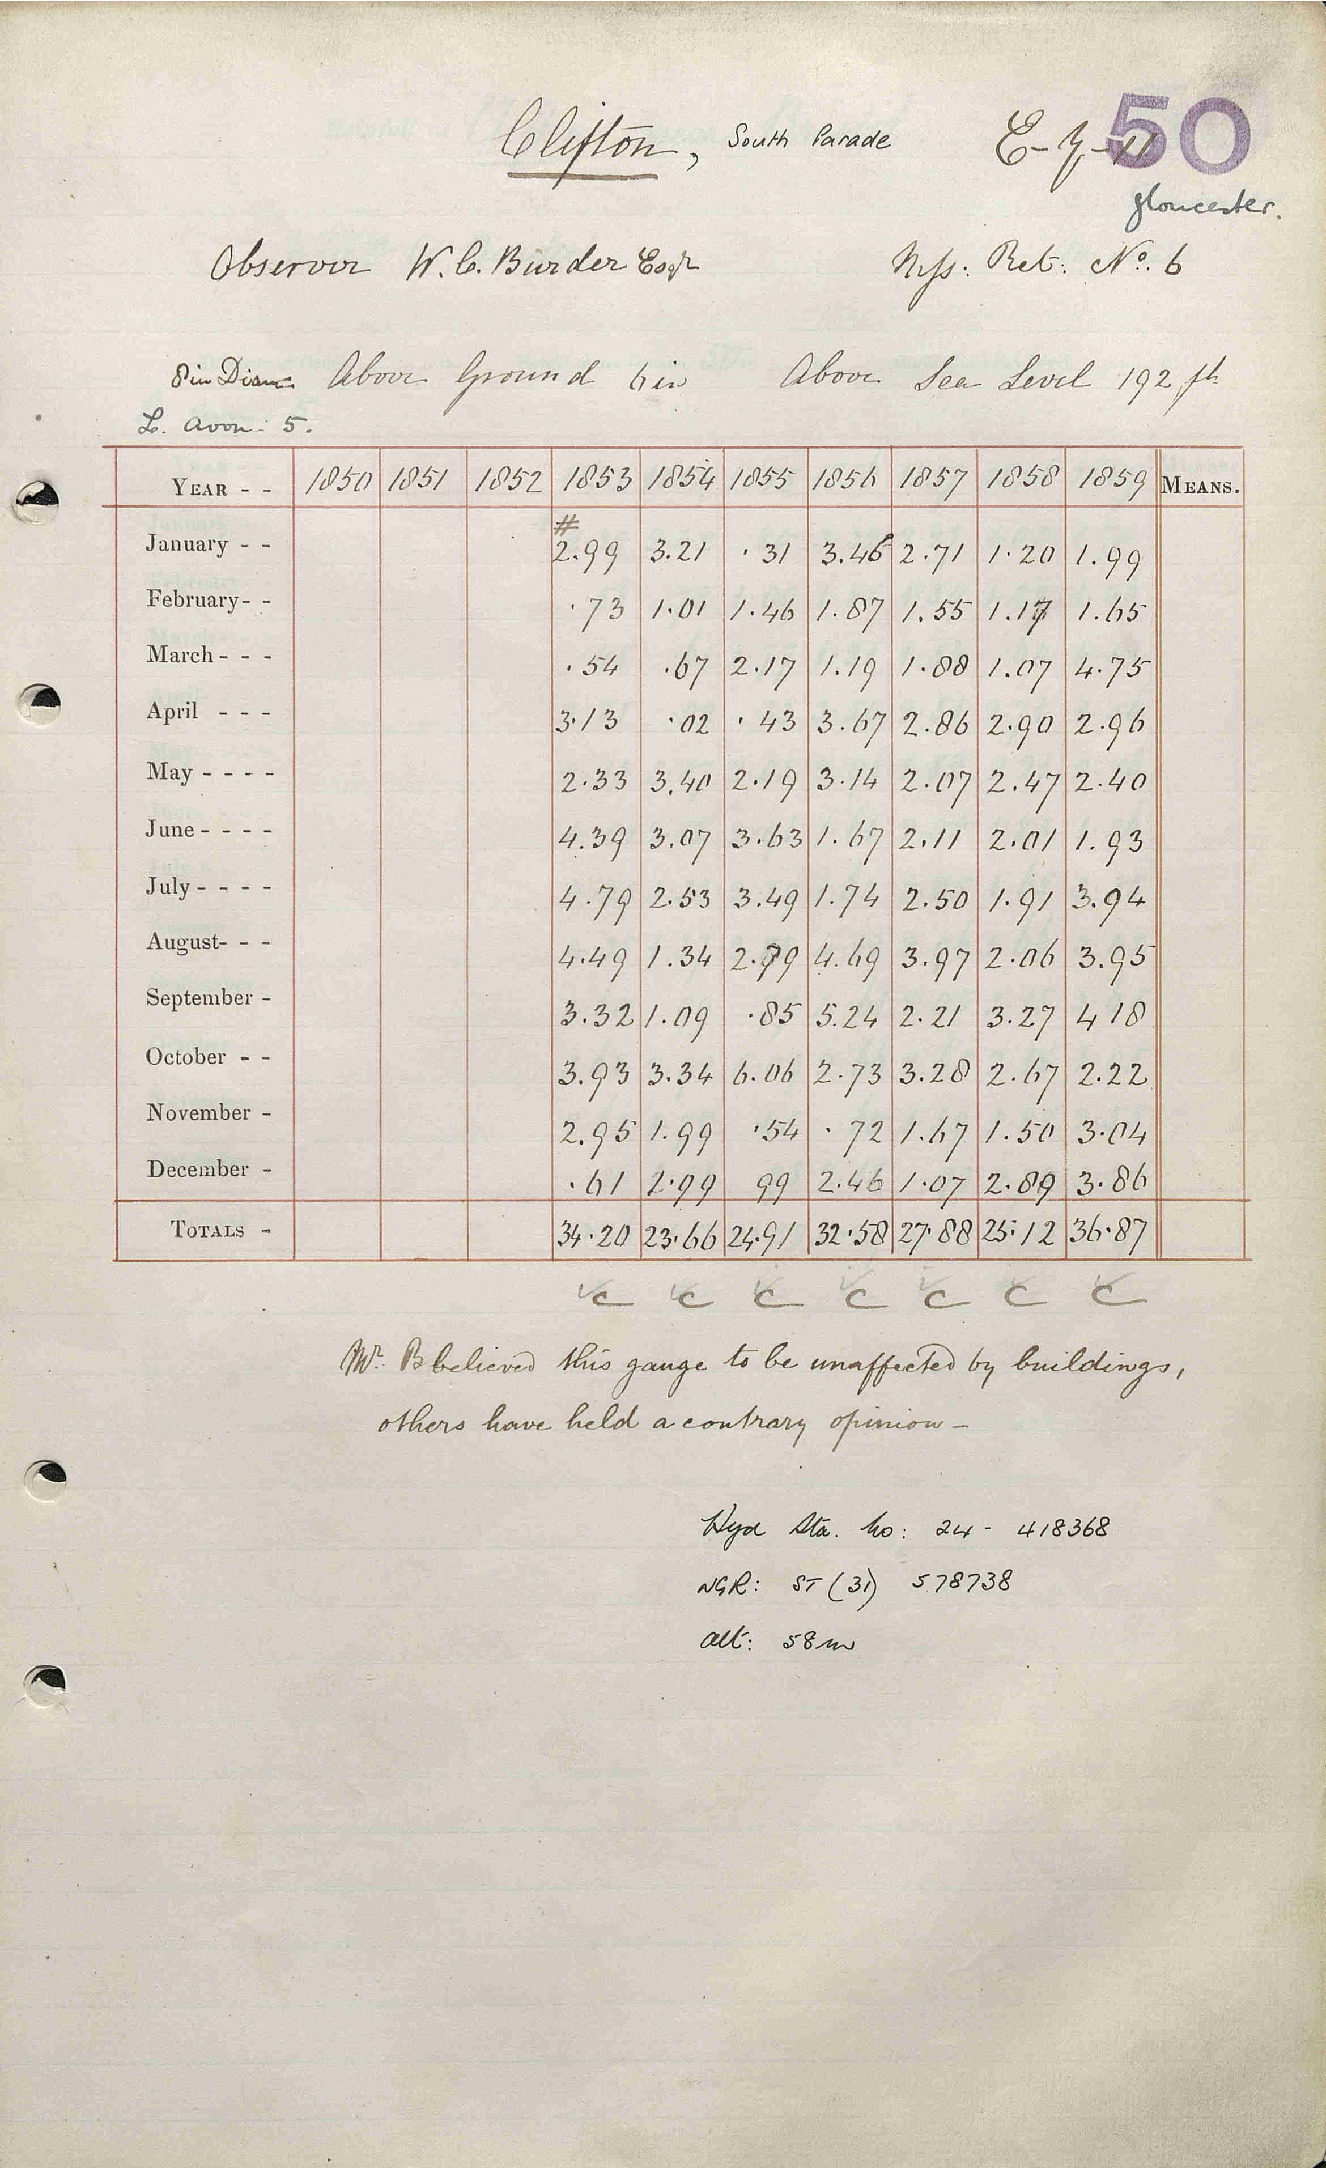 Clifton, South Parade 50
Gloucester.
Observer W. C. Burder Esqr Mss. Ret: No. 6
8 in Diam Above Ground 6 in Above Sea Level 192 ft
L. Avon: 5.
YEAR - - 1850 1851 1852 1853 1854 1855 1856 1857 1858 1859 MEANS.
#
January - - 2.99 3.21 .31 3.46 2.71 1.20 1.99
February- - .73 1.01 1.46 1.87 1.55 1.17 1.65
March - - - .54 .67 2.17 1.19 1.88 1.07 4.75
April - - - 3.13 .02 .43 3.67 2.86 2.90 2.96
May - - - - 2.33 3.40 2.19 3.14 2.07 2.47 2.40
June - - - - 4.39 3.07 3.63 1.67 2.11 2.01 1.93
July - - - - 4.79 2.53 3.49 1.74 2.50 1.91 3.94
August- - - 4.49 1.34 2.79 4.69 3.97 2.06 3.95
September - 3.32 1.09 .85 5.24 2.21 3.27 4 18
October - - 3.93 3.34 6.06 2.73 3.28 2.67 2.22
November - 2.95 1.99 .54 .72 1.67 1.50 3.04
December - .61 1.99 99 2.46 1.07 2.89 3.86
TOTALS - 34.20 23.66 24.91 32.58 27.88 25.12 36.87
C C C C C C C
Mr. B believed this gauge to be unaffected by buildings,
others have held a contrary opinion -
Hyd Sta. No: 24 - 418368
NGR: ST (31) 578738
Alt: 58m